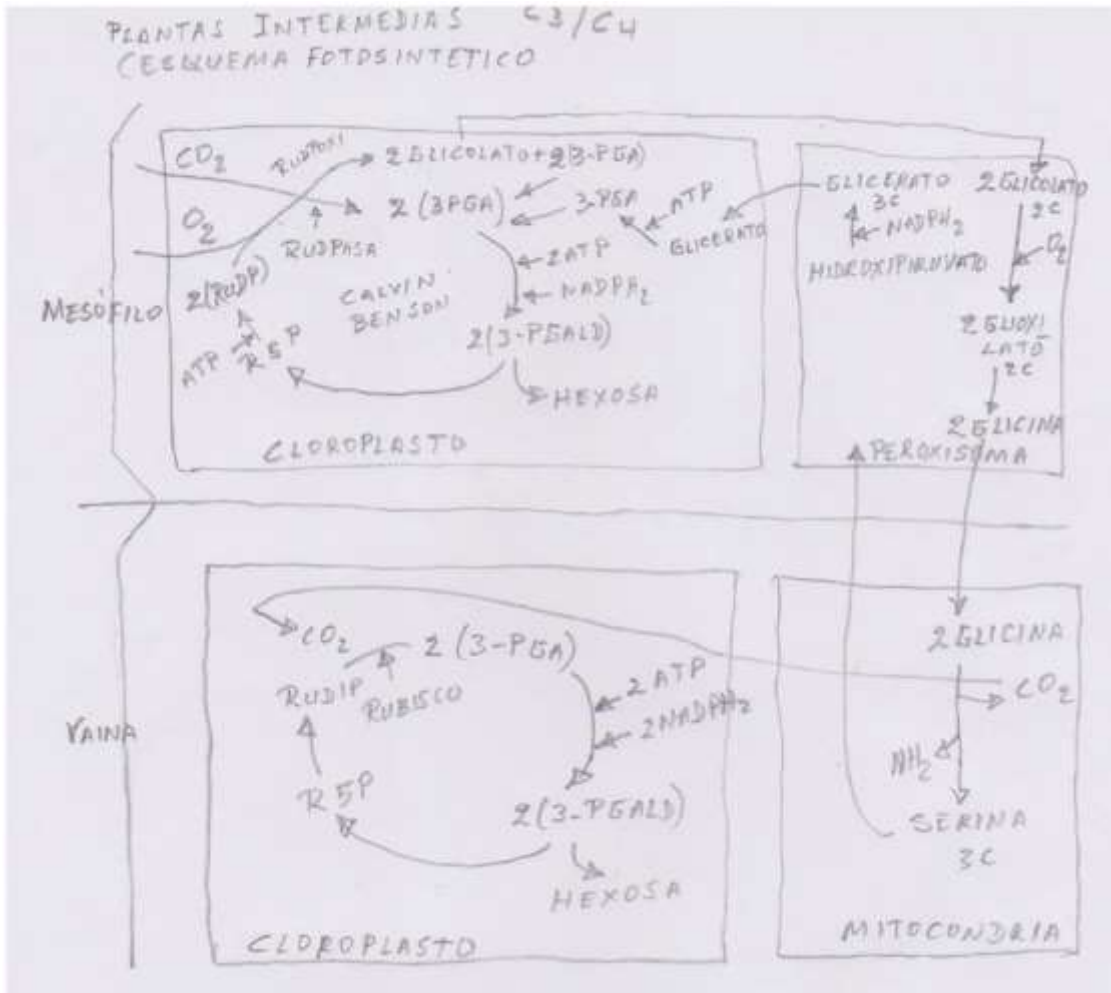 PLANTAS INTERMEDIAS C3/C4
(ESQUEMA FOTOSINTETICO
MESÓFILO
CO2
RUDPOXI
2 GLICOLATO + 2(3-PGA)
O2
RUDPASA
2 (3PGA)
3-PGA
ATP
GLICERATO
2(RUDP)
CALVIN
BENSON
2ATP
NADPH2
2(3-PGALD)
ATP
R5P
HEXOSA
CLOROPLASTO
GLICERATO
3C
2 GLICOLATO
2C
NADPH2
O2
HIDROXIPIRUVATO
2 GLIOXI
LATO
2C
2 GLICINA
PEROXISOMA
VAINA
CO2
2 (3-PGA)
RUDIP
RUBISCO
2 ATP
2NADPH2
R5P
2(3-PGALD)
HEXOSA
CLOROPLASTO
2 GLICINA
CO2
NH2
SERINA
3C
MITOCONDRIA